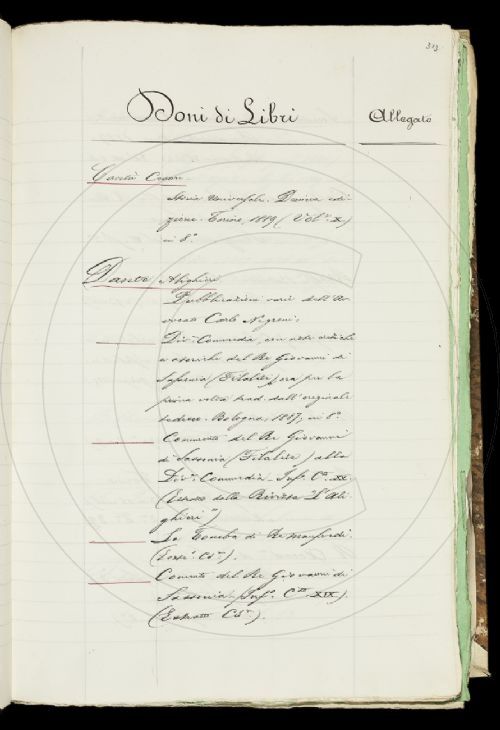 313
Doni di Libri
Allegato
Cantù Cesare
Storia Universale. Decima edi-
zione. Torino, 1889 (Vol.e X)
in 8.°
Dante Alighieri
Pubblicazioni varie dell'Av-
vocato Carlo Negroni:
Div. Commedia, con note critiche
e storiche del Re Giovanni di
Sassonia (Filalete) ora per la
prima volta trad. dall'originale
tedesco. Bologna, 1887, in 8.°
Commento del Re Giovanni
di Sassonia (Filalete) alla
Div.a Commedia. Inf.o C.o XX.
(Estratto dalla Rivista "L'Ali-
ghieri")
La Tomba di Re Manfredi.
Comento del Re Giovanni di
Sassonia. Inf.o C.to XIX.
(Estratto C.s.).